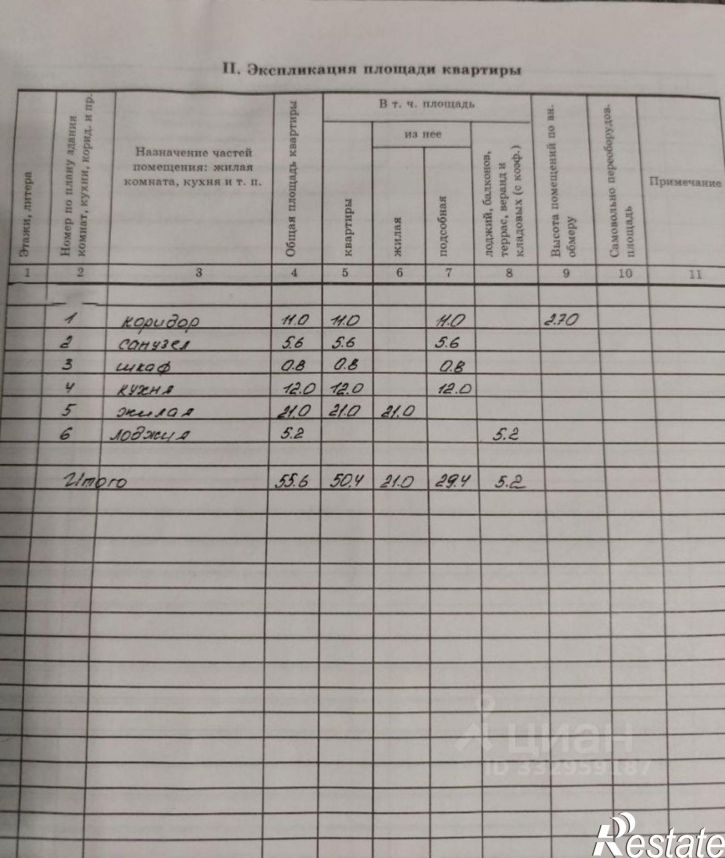 II. Экспликация площади квартиры
Этажи, литера
Номер по плану здания комнат, кухни, корид. и пр.
Назначение частей
помещения: жилая
комната, кухня и т. п.
Общая площадь квартиры
В т. ч. площадь
квартиры
из нее
жилая
подсобная
лоджий, балконов,
террас, веранд и
кладовых (с коэф.)
Высота помещений по вн.
обмеру
Самовольно переоборудов.
площадь
Примечание
1 2 3 4 5 6 7 8 9 10 11
1 коридор 11.0 11.0 11.0 2.70
2 санузел 5.6 5.6 5.6
3 шкаф 0.8 0.8 0.8
4 кухня 12.0 12.0 12.0
5 жилая 21.0 21.0 21.0
6 лоджия 5.2 5.2
Итого 55.6 50.4 21.0 29.4 5.2
циан
ID 332959187
Restate